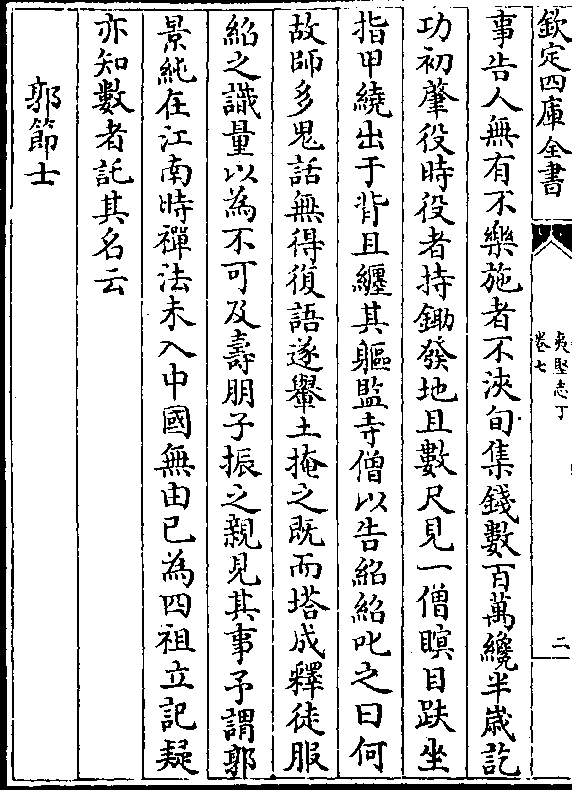 欽定四庫全書
夷堅志丁
卷七
二
事告人無有不樂施者不浹旬集錢數百萬纔半歲訖
功初肇役時役者持鋤發地且數尺見一僧瞑目趺坐
指甲繞出于背且纏其軀監寺僧以告紹紹叱之曰何
故師多鬼話無得復語遂轝土掩之既而塔成釋徒服
紹之識量以為不可及壽朋子振之親見其事予謂郭
景純在江南時禪法未入中國無由已為四祖立記疑
亦知數者託其名云
郭節士